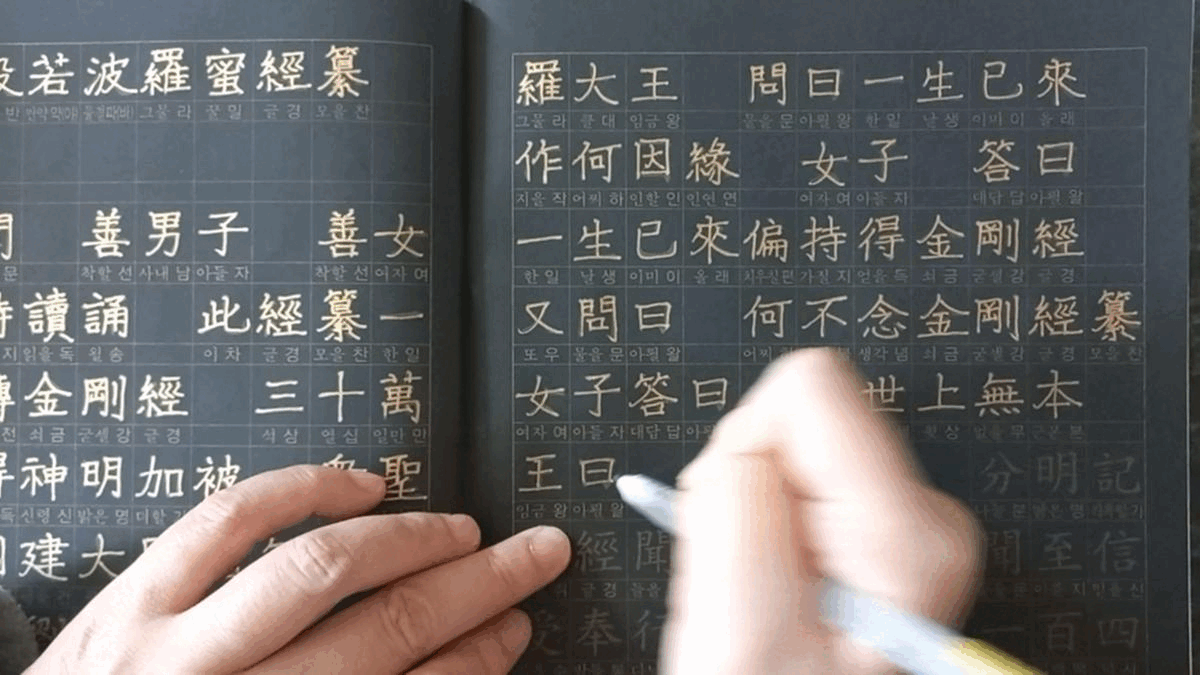 若波羅蜜經纂
그물 라 꿀 밀 글 경 모을 찬
善男子 善女
문 착할 선 사내 남 아들 자 착할 선 여자 여
讀誦 此經纂一
지 읽을 독 욀 송 이 차 글 경 모을 찬 한 일
金剛經 三十萬
전 쇠 금 굳셀 강 글 경 석 삼 열 십 일만 만
神明加被 聖
독 신령 신 밝은 명 더할 가
建大
羅大王 問曰一生已來
그물 라 큰 대 임금 왕 물을 문 아뢸 왈 한 일 날 생 이미 이 올 래
作何因緣 女子 答曰
지을 작 어찌 하 인할 인 인연 연 여자 여 아들 자 대답 답 아뢸 왈
一生已來偏持得金剛經
한 일 날 생 이미 이 올 래 치우칠 편 가질 지 얻을 득 쇠 금 굳셀 강 글 경
又問曰 何不念金剛經纂
또 우 물을 문 아뢸 왈 어찌 생각 념 쇠 금 굳셀 강 글 경 모을 찬
女子答曰 世上無本
여자 여 아들 자 대답 답 윗 상 없을 무 근본 본
王曰 分明記
임금 왕 아뢸 왈 나눌 분 밝은 명 기록할 기
經聞 聞至信
글 경 들을 믿을 신
奉行 一百四